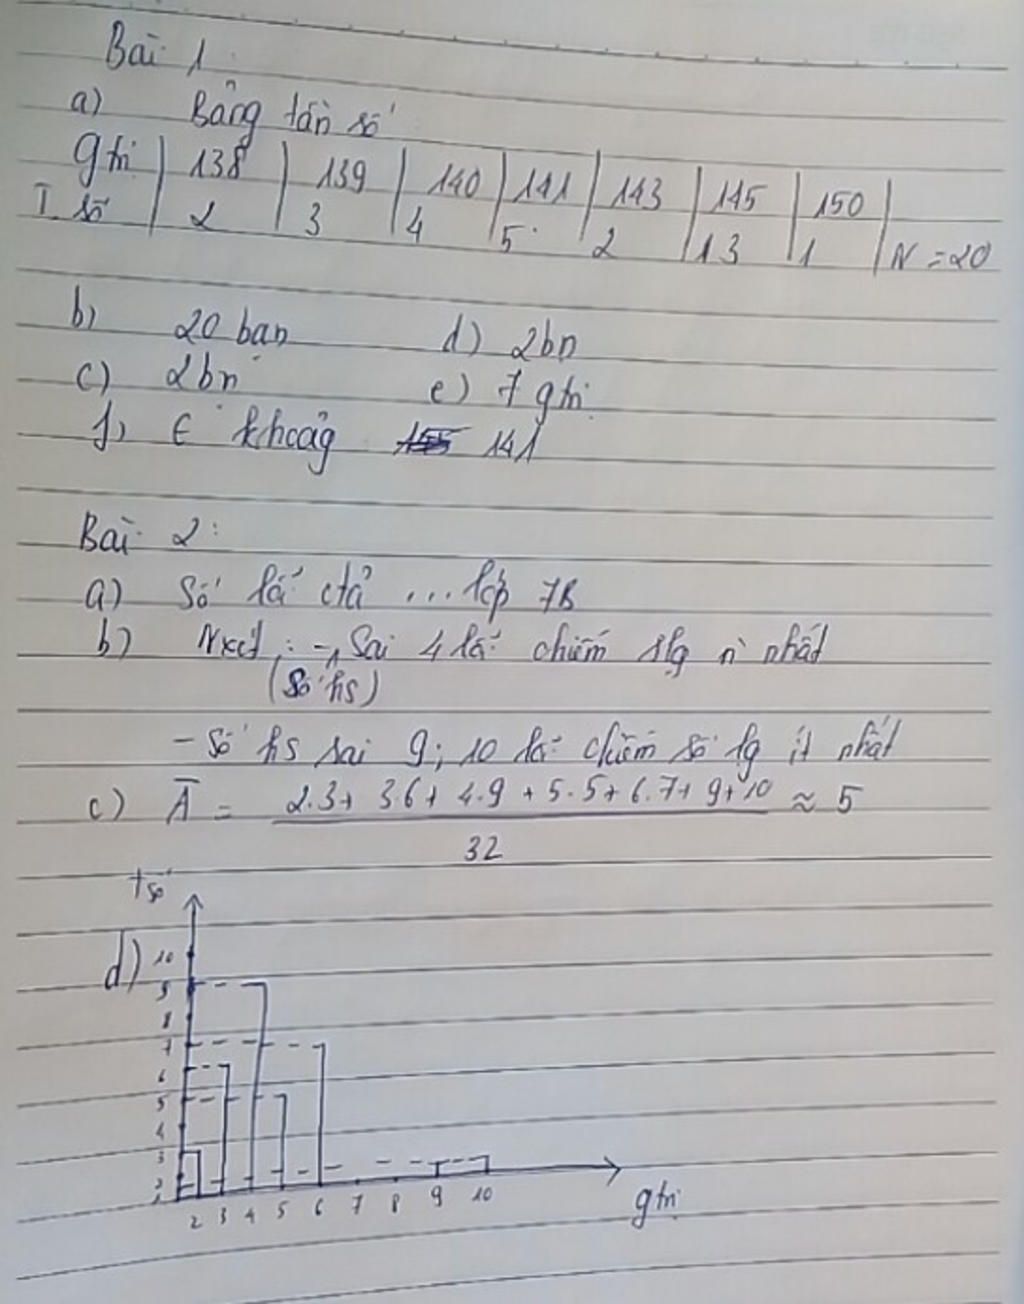 Bài 1
a) Bảng tần số
gtri 138 139 140 141 143 145 150
T số 2 3 4 5 2 13 1 N = 20
b) 20 bạn d) 2bn
c) 2bn e) 7 gtrị
f) ∈ khoảg 141
Bài 2:
a) Số lỗi ctả ... lớp 7B
b) Nxét : - Sai 4 lỗi chiếm slg n` nhất
(số hs)
- Số hs sai 9; 10 lỗi chiếm số lg ít nhất
c) A̅ = 2.3 + 3.6 + 4.9 + 5.5 + 6.7 + 9 + 10 ≈ 5
32
tsố
d) 10
9
8
7
6
5
4
3
2
1
2 3 4 5 6 7 8 9 10 gtrị